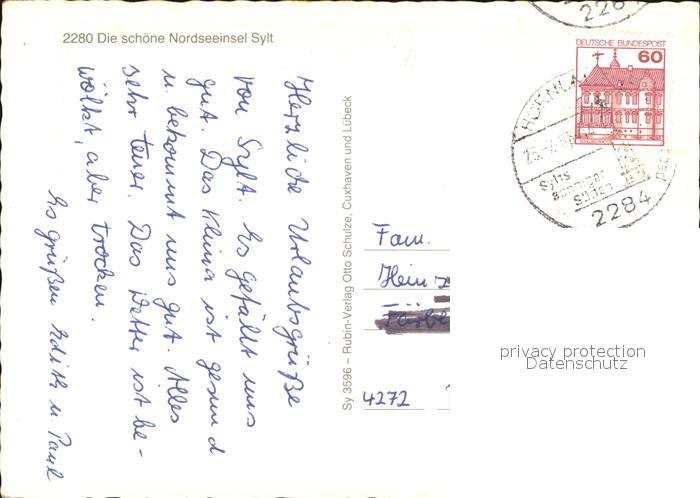 2280 Die schöne Nordseeinsel Sylt
Herzliche Urlaubsgrüße
von Sylt. Es gefällt uns
gut. Das Klima ist gesund
u. bekommt uns gut. Alles
sehr teuer. Das Wetter ist be-
wölkt, aber trocken.
Es grüßen Edith u. Paul
Sy 3596 – Rubin-Verlag Otto Schulze, Cuxhaven und Lübeck
DEUTSCHE BUNDESPOST
60
Sylts
sonniger
Süden
2284
Fam.
Heinz
4272
privacy protection
Datenschutz